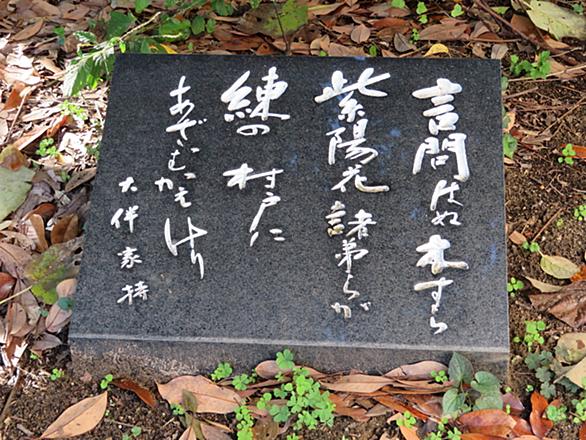 言問はぬ木すら
紫陽花諸弟らが
練の村戸に
あざむかえけり
大伴家持